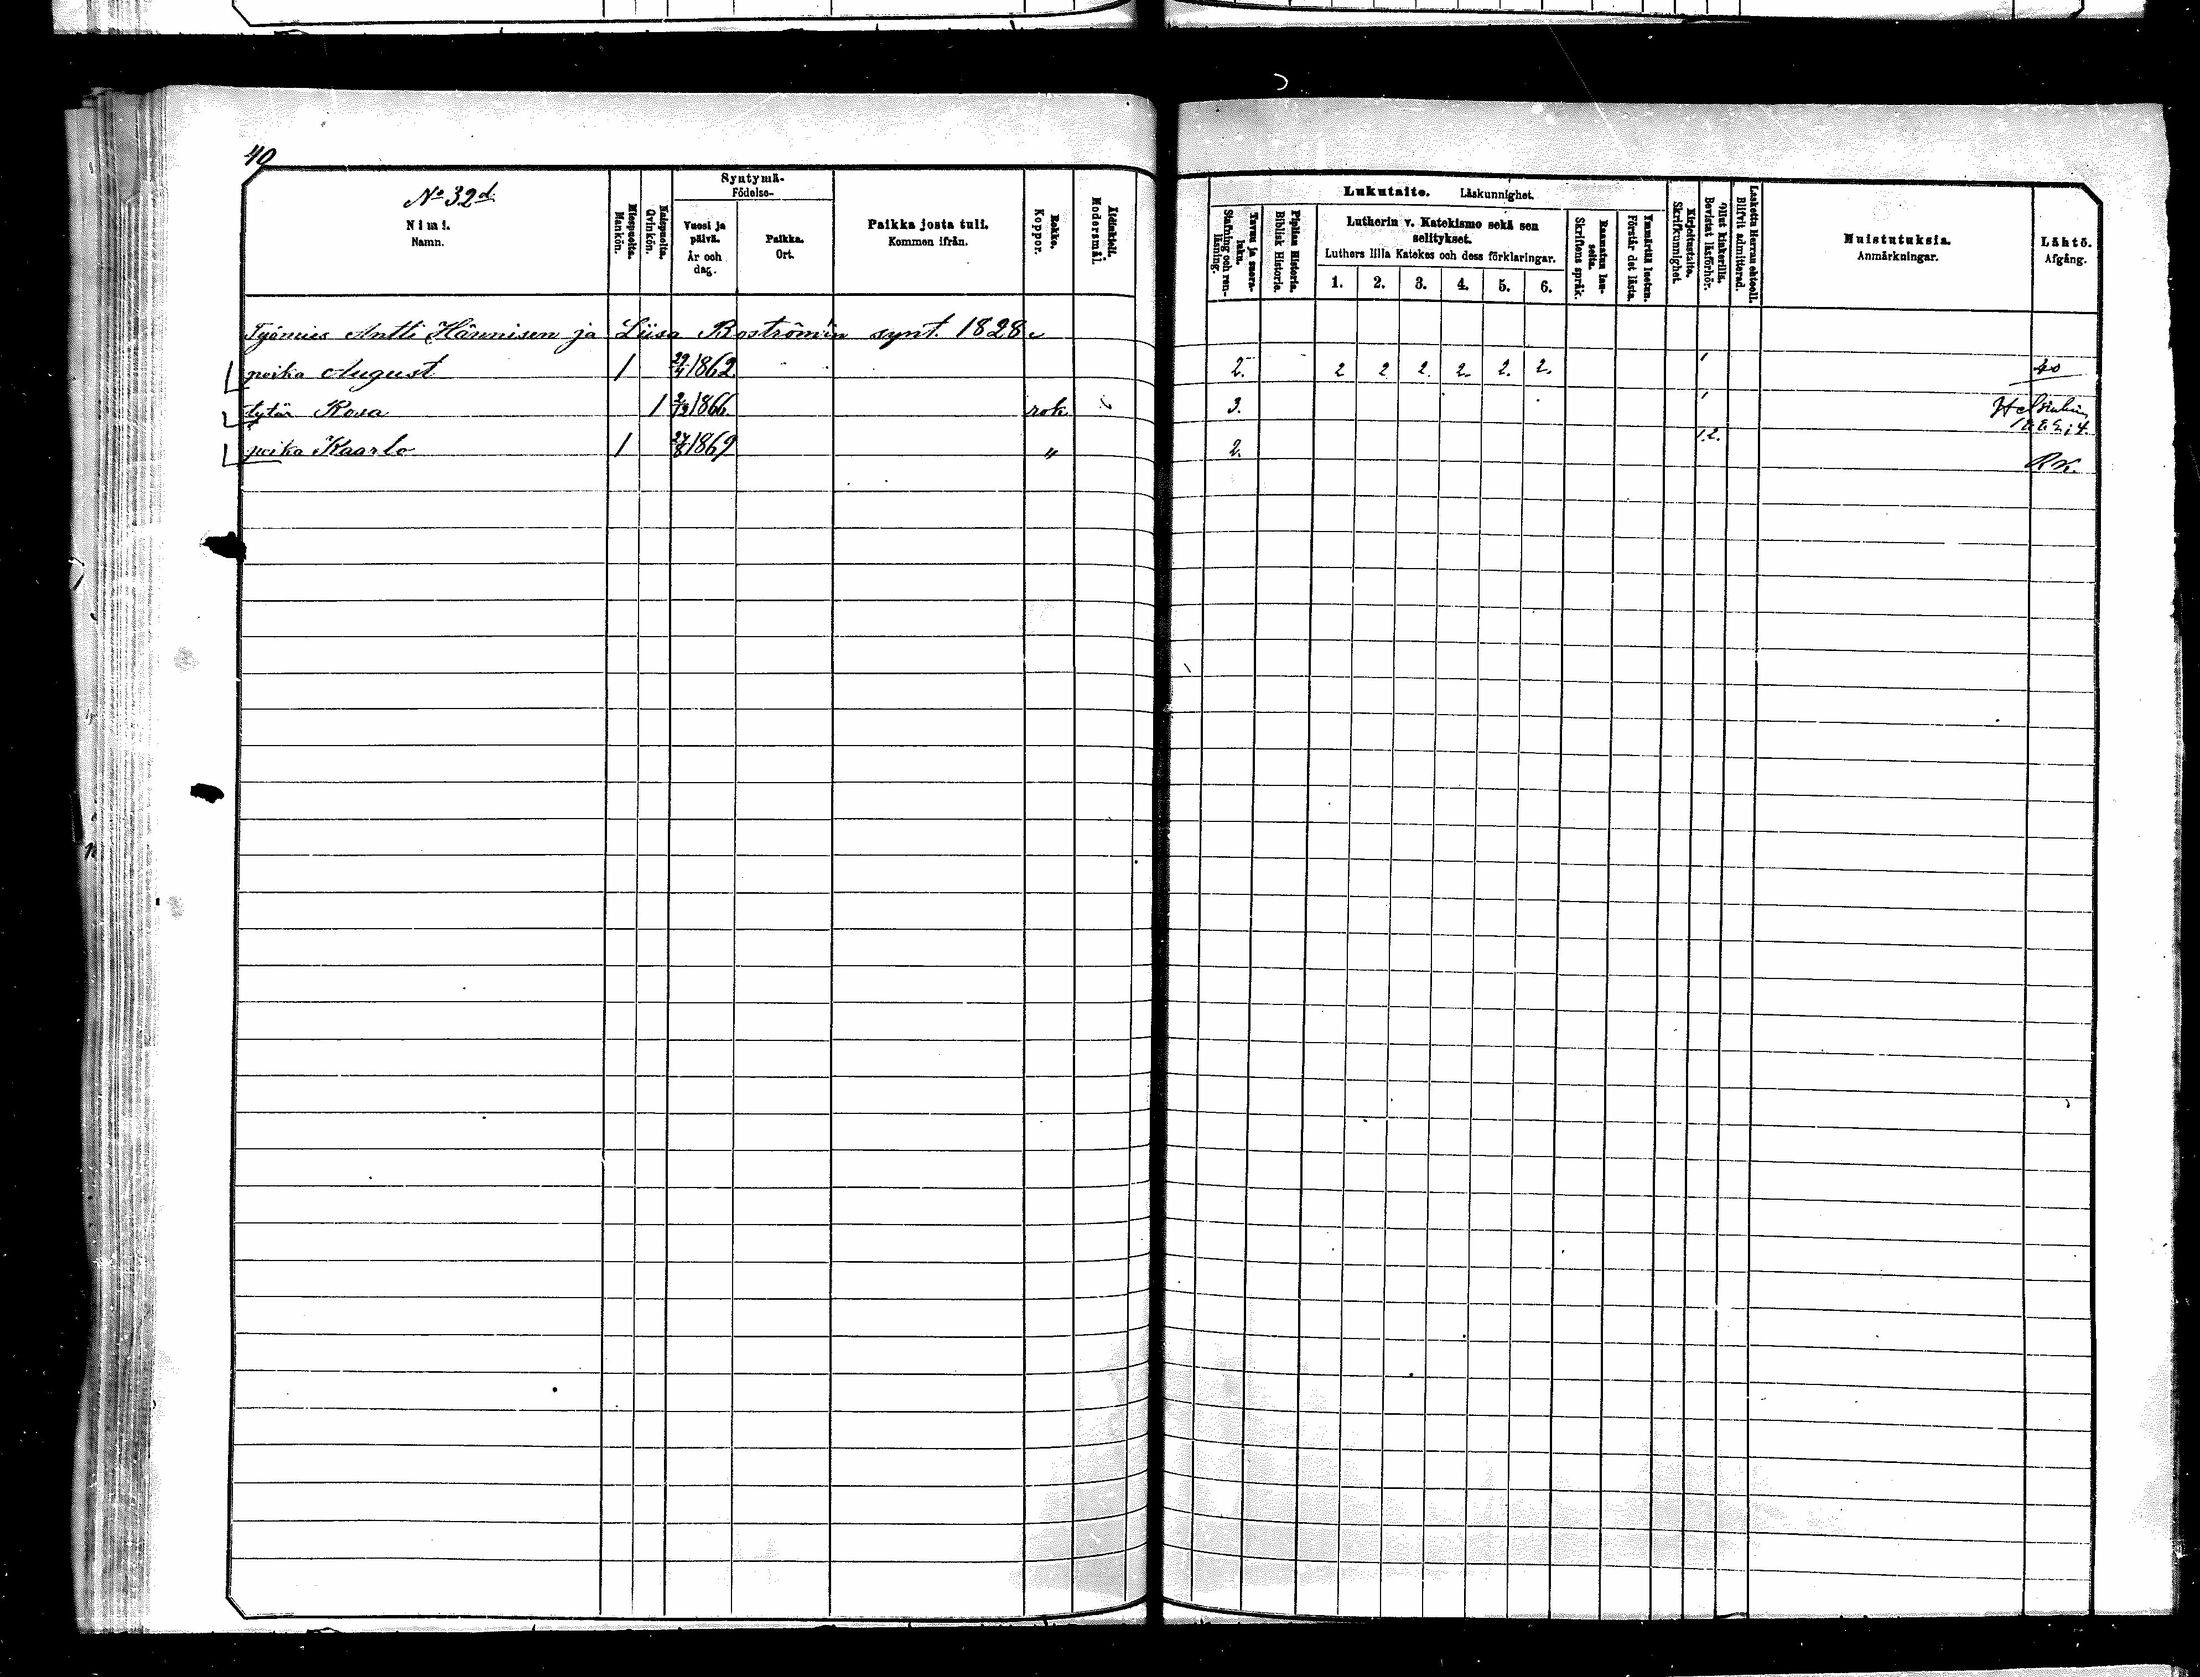 40
No 32d
Nimi.
Namn.
Miespuolta.
Mankön.
Naispuolta.
Qvinkön.
Syntymä-
Födelse-
Vuosi ja
päivä.
År och
dag.
Paikka.
Ort.
Paikka josta tuli.
Kommen ifrån.
Rokko.
Koppor.
Äidinkieli.
Modersmål.
Lukutaito. Läskunnighet.
Tavuu ja suora-
luku.
Stafning och ren-
läsning.
Piplian Historia.
Biblisk Historia.
Lutherin v. Katekismo sekä sen
selitykset.
Luthers lilla Katekes och dess förklaringar.
1. 2. 3. 4. 5. 6.
Raamatun lau-
seita.
Skriftens språk.
Ymmärtää luetun.
Förstår det lästa.
Kirjoitustaito.
Skrifkunnighet.
Ollut kinkerillä.
Bevistat läsförhör.
Laskettu Herran ehtooll.
Blifvit admitterad.
Muistutuksia.
Anmärkningar.
Lähtö.
Afgång.
Työmies Antti Hännisen ja Liisa Boströmin synt. 1828
poika August 1 29/4 1862 2. 2 2 2. 2. 2. 2. 1 40
tytär Rosa 1 2/3 1866 rok 3. 1 Helsinkiin
poika Kaarlo 1 27/8 1869 " 2. 1.2. RK.